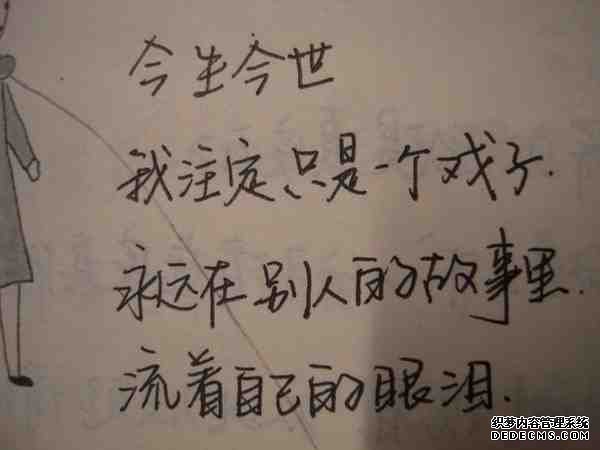 今生今世
我注定只是一个戏子.
永远在别人的故事里.
流着自己的眼泪.
织梦内容管理系统
DEDECMS.COM